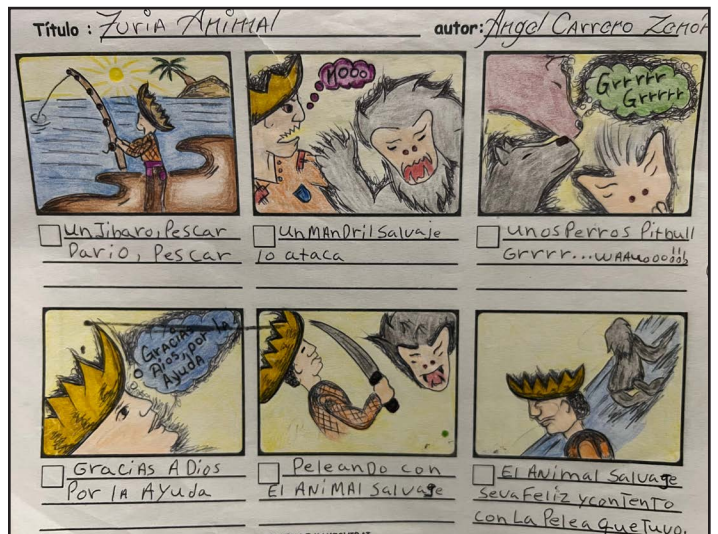 Título : Furia Animal
autor: Angel Carrero Zenón
Nooo
Grrrrr
Grrrrr
Un Jibaro, Pescar
Dario, Pescar
Un MAnDril Salvaje
lo ataca
Unos Perros Pitbull
Grrrr...
GrAciAs
A Dios, por la
Ayuda
GraciAs A Dios
Por lA AYuda
PeleanDo con
El ANiMAl Salvage
El ANimal Salvage
se va Feliz y conTenTo
con La Pelea que Tuvo.